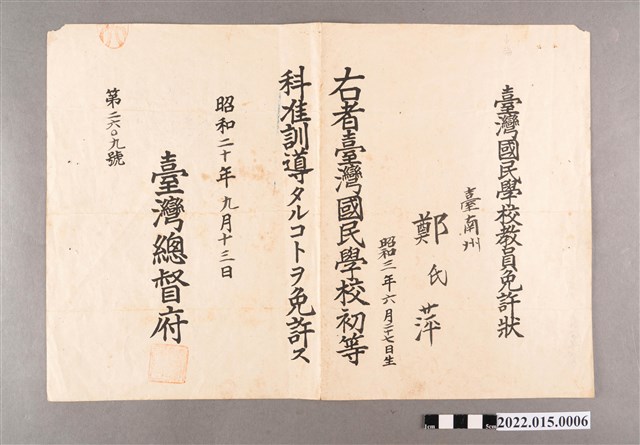 臺灣國民學校教員免許狀
臺南州
鄭氏萍
昭和三年六月二十七日生
右者臺灣國民學校初等
科准訓導タルコトヲ免許ス
昭和二十年九月十三日
臺灣總督府
第二六〇九號
1cm 5cm
2022.015.0006